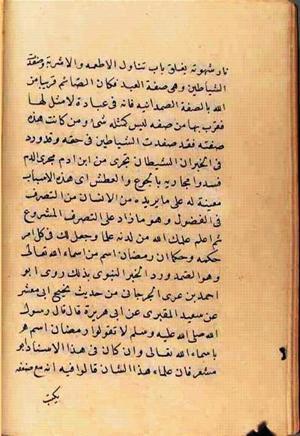 نار شهوته بغلق باب تناول الاطعمه والاشربة وصفد
الشياطين وهى صفة العبد فكان الصائم قريبا من
الله بالصفة الصمدانيه فانه فى عبادة لا مثل لها
فقرب بها من صفه ليس كمثله شىء ومن كانت هذه
صفته فقد صفدت الشياطين فى حقه وقد ورد
فى الخبر ان الشيطان يجرى من ابن ادم مجرى الدم
فسدوا مجاريه بالجوع والعطش اى هذه الاسباب
معينة له على ما يريده من الانسان من التصرف
فى الفضول وهو ما زاد على التصرف المشروع
ثم اعلم علمك الله من لدنه علما وجعل لك فى كل امر
حكمه وحكما ان رمضان اسم من اسماء الله تعالى
وهو الصمد ورد الخبر النبوى بذلك روى ابو
احمد بن عدى الجرجانى من حديث نجيح ابى معشر
عن سعيد المقبرى عن ابى هريرة قال قال رسول
الله صلى الله عليه وسلم لا تقولوا رمضان فان رمضان اسم
باسماء الله تعالى وان كان فى هذا الاسناد ابو
معشر فان علماء هذا الشان قالوا فيه انه مع ضعفه
يكتب